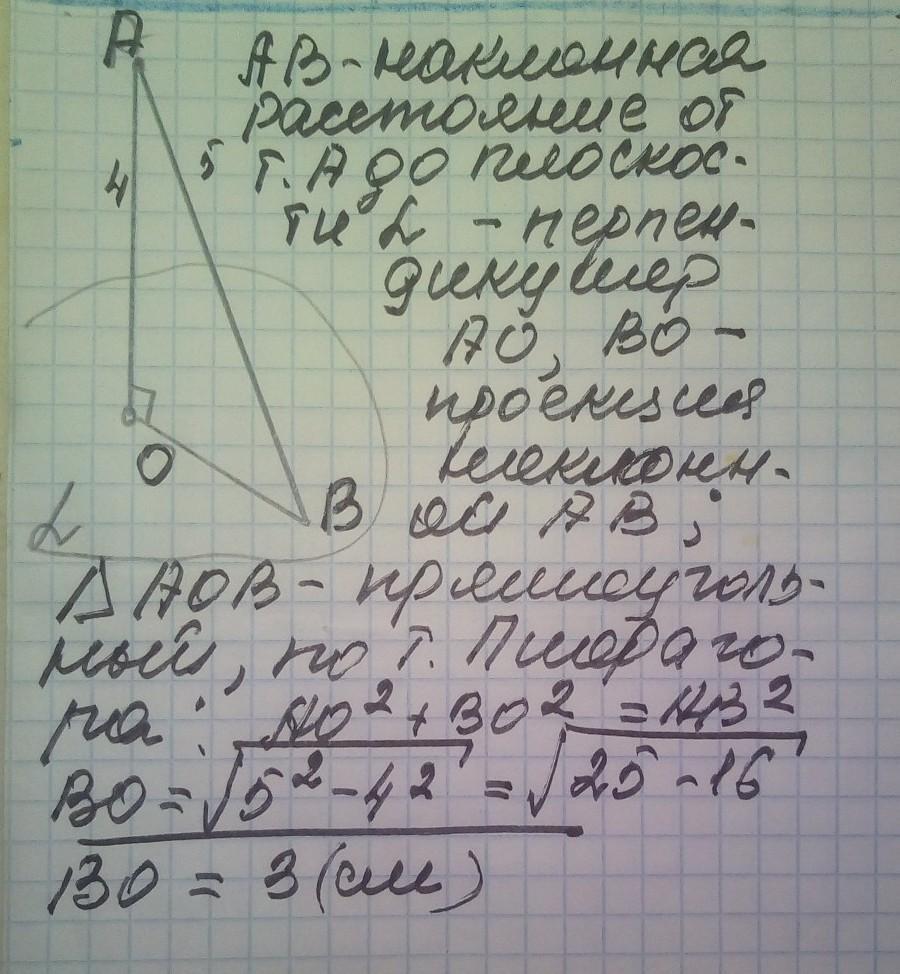 A
4
5
O
B
α
AB - наклонная
расстояние от
т. А до плоскос-
ти α - перпен-
дикуляр
АО, ВО -
проекция
наклонн-
ой АВ;
Δ AOB - прямоуголь-
ный, по т. Пифаго-
ра: AO² + BO² = AB²
BO = √5² - 4² = √25 - 16
BO = 3 (см)